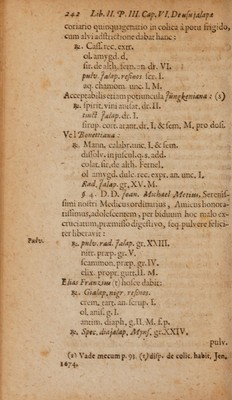 242 Lib. II. P. III. Cap. VI. De usu jalapæ
coriario quinquagenario in colica à potu frigido,
cum alvi adstrictione dabat hanc:
℞. Cass. rec. extr.
ol. amygd. d.
sir. de alth. fern. an. dr. VI.
pulv. jalap. resinos. scr. I.
aq. chamom. unc. I. M.
Acceptabilis etiam potiuncula Jüngkeniana: (2)
℞. spirit. vini anisat. dr. II.
tinct. jalap. dr. I.
sirup. cort. arant. dr. I, & sem. M. pro dosi.
Vel Bonettiana:
℞. Mann. calabr. unc. I, & sem.
dissolv. in juscul. q. s. add.
colat. sir. de alth. Fernel.
ol. amygd. dulc. rec. expr. an. unc. I.
Rad. jalap. gr. XV. M.
§. 4. D. D. Joan. Michael Metius, Serenis-
simi nostri Medicus ordinarius, Amicus honora-
tissimus, adolescentem, per biduum hoc malo ex-
cruciatum, præmisso digestivo, seq. pulvere felici-
ter liberavit:
Pulv. ℞. pulv. rad. jalap. gr. XIII.
nitr. præp. gr. V.
scammon. præp. gr. IV.
elix. propr. gutt. II. M.
Elias Franzius (3) hosce dabit:
℞. Gialap. nigr. resinos.
crem. tart. an. scrup. I.
ol. anis. g. I.
antim. diaph. g. II. M. f. p.
℞. Spec. diajalap. Myns. gr. XXIV.
pulv.
(2) Vade mecum p. 93. (3) disp. de colic. habit. Jen.
1674.